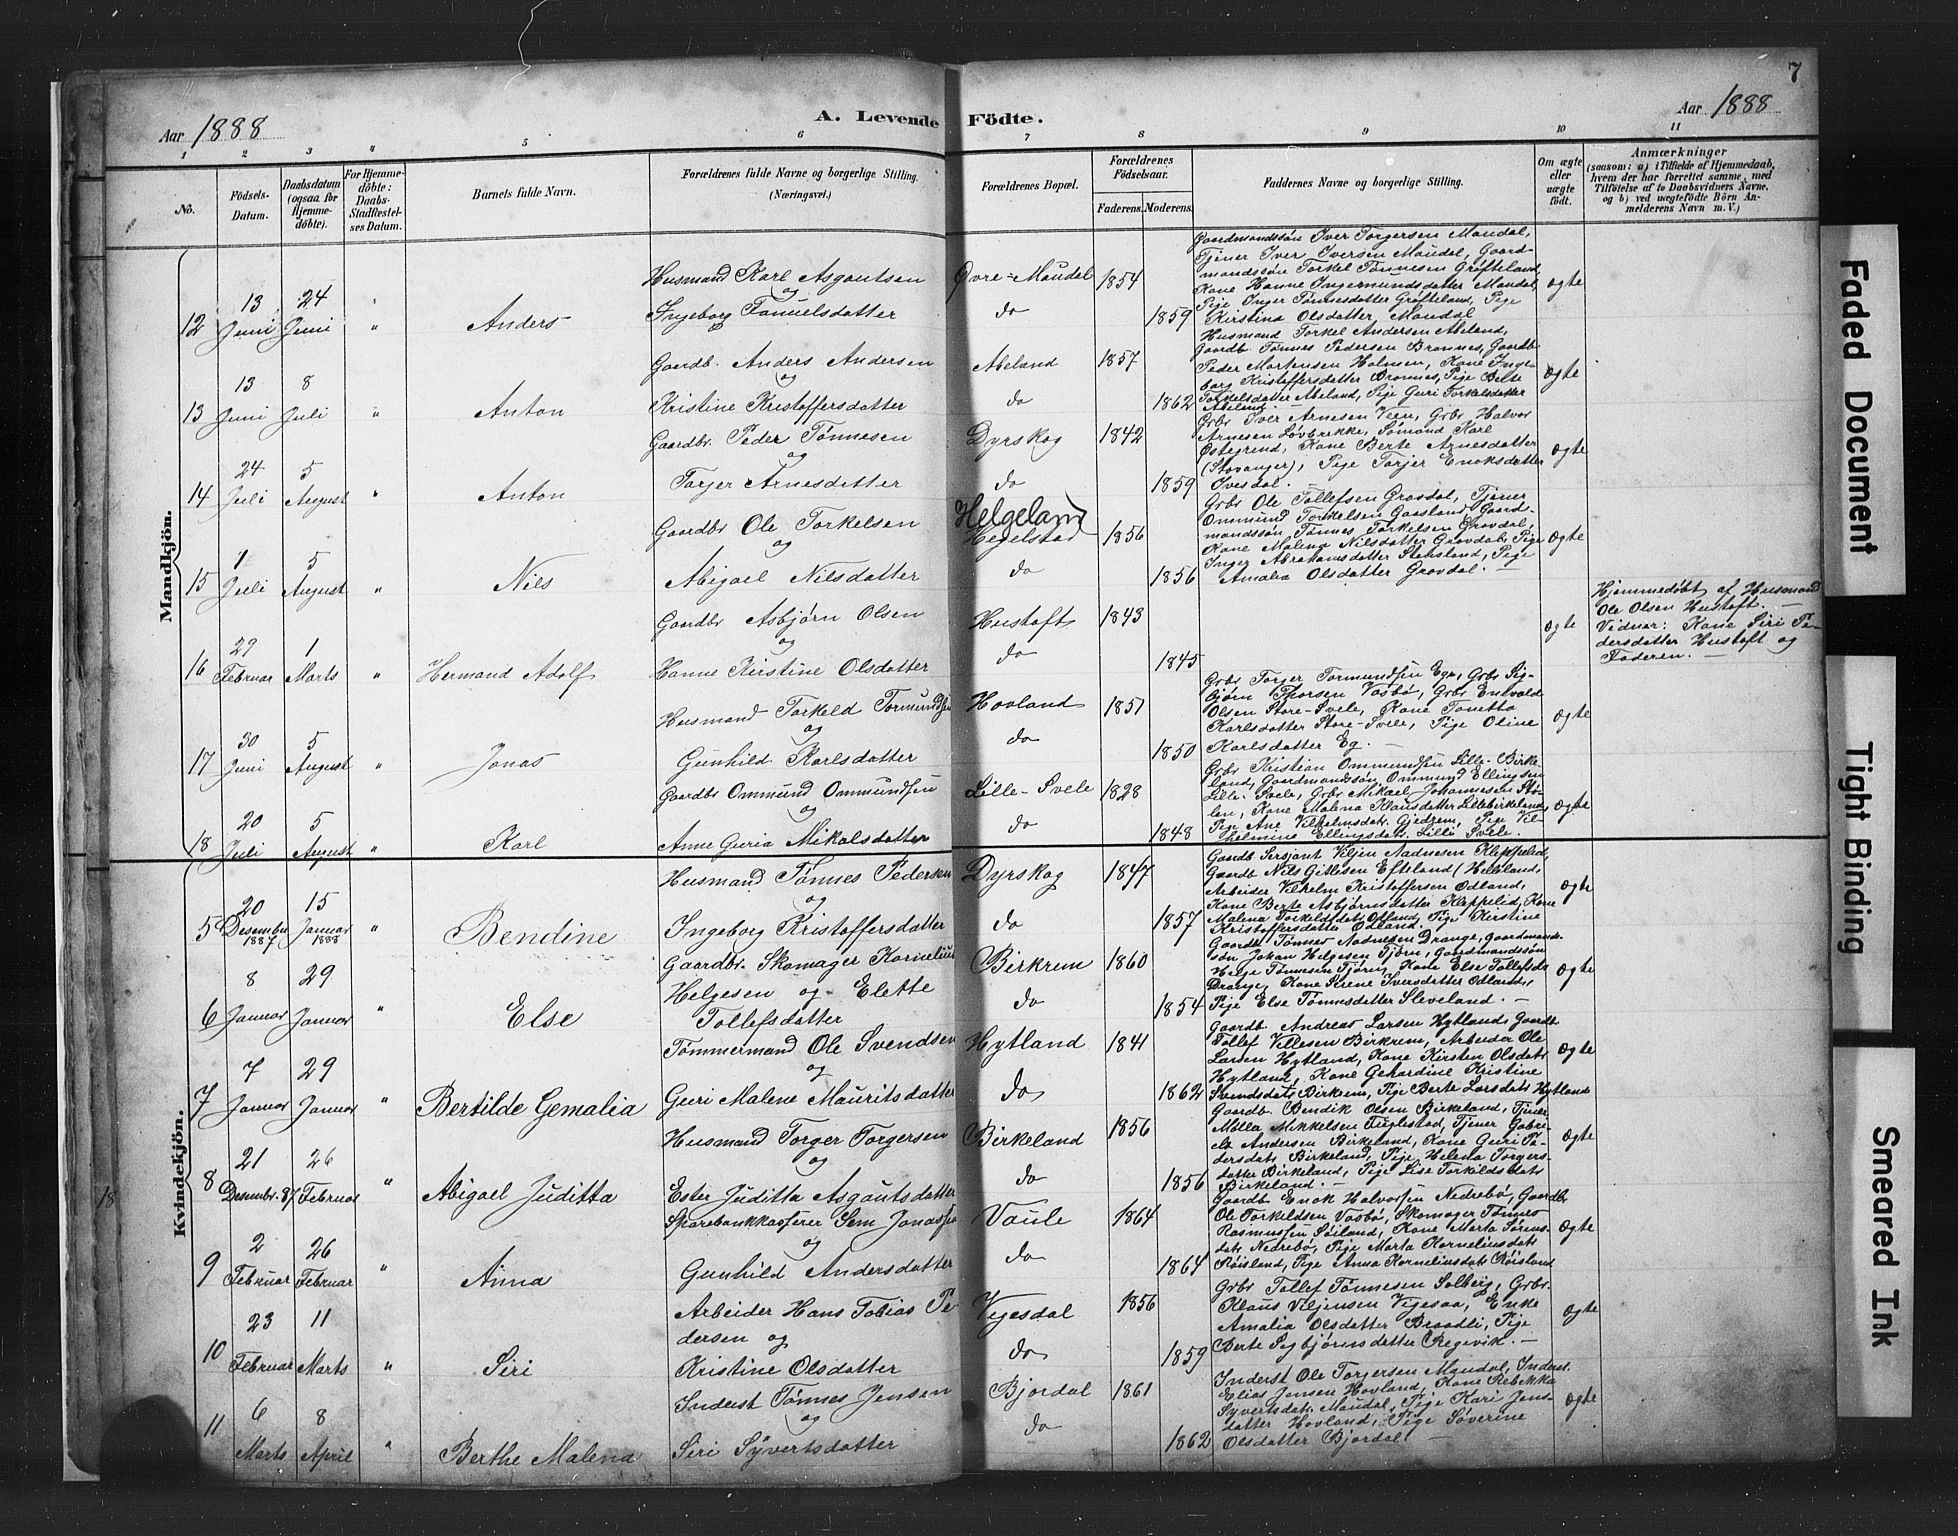 7
Aar 1888
A. Levende Födte.
Aar 1888
1 2 3 " 5 6 7 8 9 10 11
No.
Födsels-Datum.
Daabsdatum (ogsaa for Hjemme-döbte).
For Hjemme-döbte: Daabs-Stadfæstel-ses Datum.
Barnets fulde Navn.
Forældrenes fulde Navne og borgerlige Stilling. (Næringsvei.)
Forældrenes Bopæl.
Forældrenes Födselsaar.
Faderens. Moderens.
Faddernes Navne og borgerlige Stilling.
Om ægte eller uægte födt.
Anmærkninger
(saasom: a) i Tilfælde af Hjemmedaab,
hvem der har forrettet samme, med
Tilföielse af to Daabsvidners Navne,
og b) ved uægtefödte Börn An-
melderens Navn m. V.)
Mandkjön.
12 13 Juni 24 Juni " Anders
Husmand Karl Asgautsen
og
Ingeborg Samuelsdatter
Øvre-Maudal 1854
do 1859
Gaardmandssøn Iver Torgersen Maudal,
Tjener Iver Iversen Maudal, Gaard-
mandssøn Torkel Tønnesen Grøfteland,
Kone Hanne Ingemundsdatter Maudal,
Pige Inger Tønnesdatter Grøfteland, Pige
Kirstina Olsdatter, Maudal
Ægte
13 13 Juni 8 Juli " Anton
Gaardb. Anders Andersen
og
Kristine Kristoffersdatter
Abeland 1857
do 1862
Husmand Torkel Andersen Abeland,
Gaardb. Tønnes Pedersen Brønnes, Gaardb.
Peder Mortensen Holmen, Kone Inge-
borg Kristoffersdatter Brønnes, Pige Berte
Torkelsdatter Abeland, Pige Guri Torkelsdatter
Abeland.
Ægte
14 24 Juli 5 August " Anton
Gaardbr. Peder Tønnesen
og
Torjer Arnesdatter
Dyrskog 1842
do 1859
Grbr Iver Arnesen Veen, Grbr Halvor
Arnesen Løvbrekke, Sømand Karl
Østegrend, Kone Berte Arnesdatter
(Stavanger), Pige Torjer Enoksdatter
Ivesdal.
Ægte
15 1 Juli 5 August " Nils
Gaardbr Ole Torkelsen
og
Abigael Nilsdatter
Helgeland
Hegelstad 1856
do 1856
Grbr Ole Tollefsen Grovdal, Tjener
Ommund Torkelsen Gaasland, Gaard-
mandssøn Tønnes Torkelsen Grovdal,
Kone Malena Nilsdatter Grovdal, Pige
Inger Abrahamsdatter Stensland, Pige
Amalia Olsdatter Grovdal. —
Ægte
16 29 Februar 1 Marts " Hermand Adolf
Gaardbr Asbjørn Olsen
og
Hanne Kirstine Olsdatter
Hustoft 1843
do 1845
Ægte
Hjemmedøbt af Husmand
Ole Olsen Hustoft. —
Vidner: Kone Siri Pe-
dersdatter Hustoft og
Faderen. —
17 30 Juni 5 August " Jonas
Husmand Torkeld Tormundsen
og
Gunhild Karlsdatter
Hovland 1851
do 1850
Grbr Torger Tormundsen Ege, Grbr Sig-
bjørn Thorsen Vasbø, Grbr Enevald
Olsen Store-Svele, Kone Tonetta
Karlsdatter Store-Svele, Pige Oline
Karlsdatter Eg. —
Ægte
18 20 Juli 5 August " Karl
Gaardbr Ommund Ommundsen
og
Anne Guria Mikalsdatter
Lille-Svele 1828
do 1848
Grbr Kristian Ommundsen Lille-Birke-
land, Gaardmandssøn Ommund Ellingsen
Lille-Svele, Grbr Mikael Johannesen Stø-
len, Kone Malena Klausdatter Lillebirkeland,
Pige Ane Vilhelmsdatr. Gjedrem, Pige Vil-
helmine Ellingsdatr. Lille Svele.
Ægte
Kvindekjön.
5 20 Desember 1887 15 Januar 1888 " Bendine
Husmand Tønnes Pedersen
og
Ingeborg Kristoffersdatter
Dyrskog 1847
do 1857
Gaardb. Sersjant Viljen Aadnesen Kleppelid,
Gaardb Nils Gitlesen Efteland (Helleland,
Arbeider Vilhelm Kristoffersen Odland,
Kone Berte Asbjørnsdatter Kleppelid, Kone
Malena Torkeldsdatr Odland, Pige Kirstine
Kristoffersdatter Odland.
Ægte
6 8 Januar 29 Januar " Else
Gaardbr. Skomager Kornelius
Helgesen og Elette
Tollefsdatter
Birkrem 1860
do 1854
Gaardb Tønnes Aadnesen Drange, Gaardmands-
søn Johan Helgesen Tjørn, Gaardmandssøn
Helge Tønnesen Tjørn, Kone Else Tollefsdr
Drange, Kone Serene Iversdatter Odland,
Pige Else Tønnesdatter Sleveland. —
Ægte
7 7 Januar 29 Januar " Bertilde Gemalia
Tømmermand Ole Svendsen
og
Guri Malene Mauritsdatter
Hytland 1841
do 1862
Gaardb. Andreas Larsen Hytland, Gaardb.
Tollef Villesen Birkrem, Arbeider Ole
Larsen Hytland, Kone Kirsten Olsdatr
Hytland, Kone Gehardine Kristine
Svendsdatr Birkrem, Pige Berte Larsdatr Hytland
Ægte
8 21 Desembr. 87 26 Februar " Abigael Juditta
Husmand Torger Torgersen
og
Ester Juditta Asgautsdatter
Birkeland 1856
do 1856
Gaardb. Bendik Olsen Birkeland, Tjener
Målla Mikkelsen Fuglestad, Tjener Gabri-
els Andersen Birkeland, Kone Guri Pe-
dersdatr Birkeland, Pige Helena Torgers-
datter Birkeland, Pige Lise Torkildsdatr
Birkeland. —
Ægte
9 2 Februar 26 Februar " Anna
Sparebankkasserer Sem Jonassen
og
Gunhild Andersdatter
Vaule 1864
do 1864
Gaardb Enok Halvorsen Nedrebø, Gaardbr
Ole Torkildsen Vasbø, Skomager Tønnes
Rasmussen Søiland, Kone Marta Sørens-
datr Nedrebø, Pige Marta Korneliusdatr
Røisland, Pige Anna Korneliusdatr Røisland
Ægte
10 23 Februar 11 Marts " Siri
Arbeider Hans Tobias Pe-
dersen og
Kristine Olsdatter
Vigesdal 1856
do 1859
Grbr Tollef Tønnesen Solberg, Grbr.
Klaus Viljensen Vigesaa, Enke
Amalia Olsdatter Braadli, Pige
Berte Sigbjørnsdatter Regevik. —
Ægte
11 6 Marts 8 April " Berthe Malena
Inderst Tønnes Jensen
og
Siri Syvertsdatter
Bjordal 1861
do 1862
Inderst Ole Torjersen Maudal, Inderst
Elias Jensen Hovland, Kone Rebekka
Syvertsdatr. Maudal, Pige Kari Jens-
datter Hovland, Pige Søverine
Olsdatter Bjordal. —
Ægte
18
Faded Document
Tight Binding
Smeared Ink